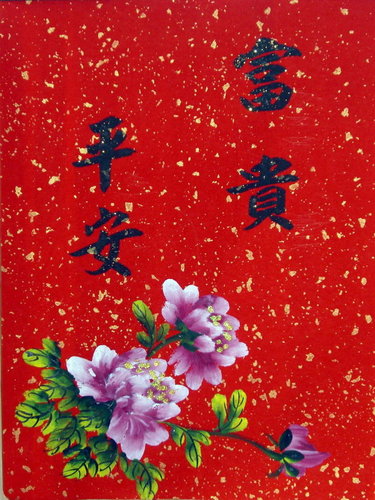 富貴
平安